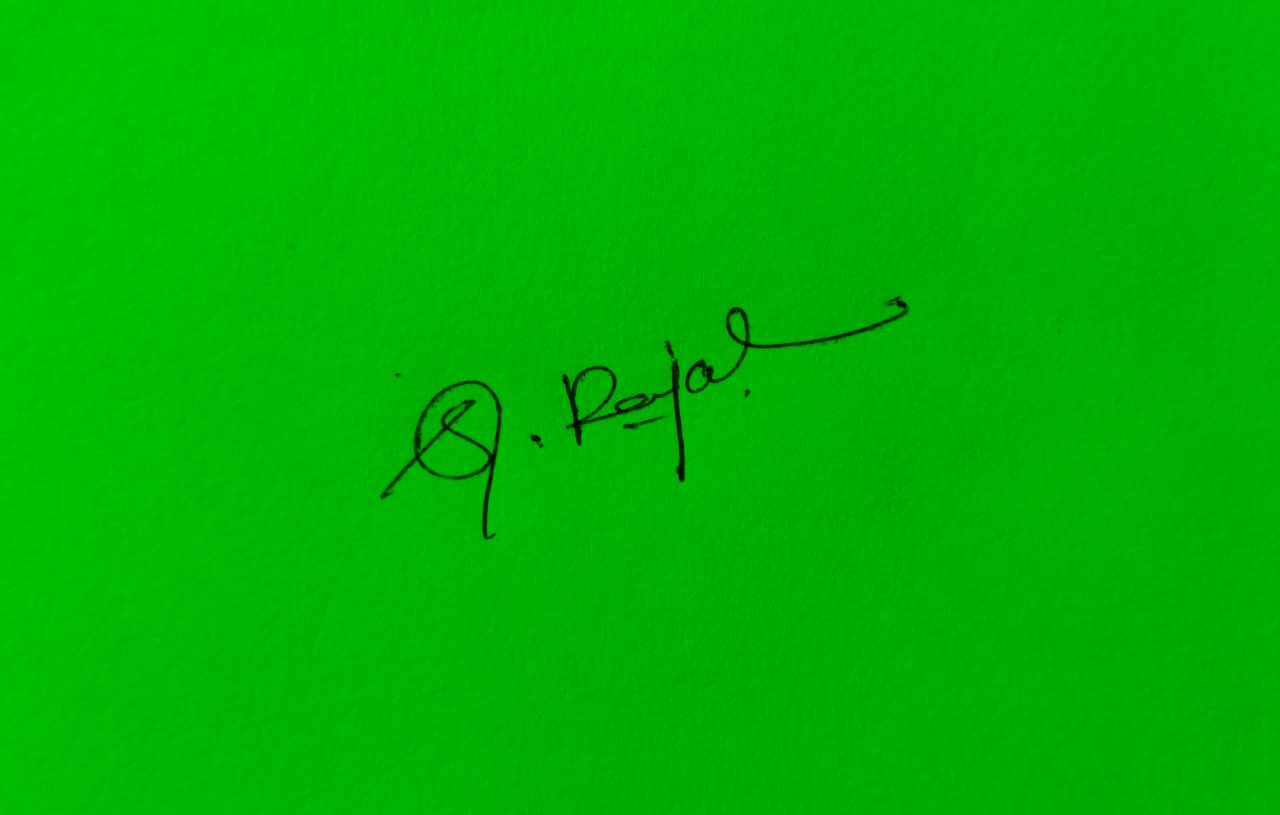 S. Rajal